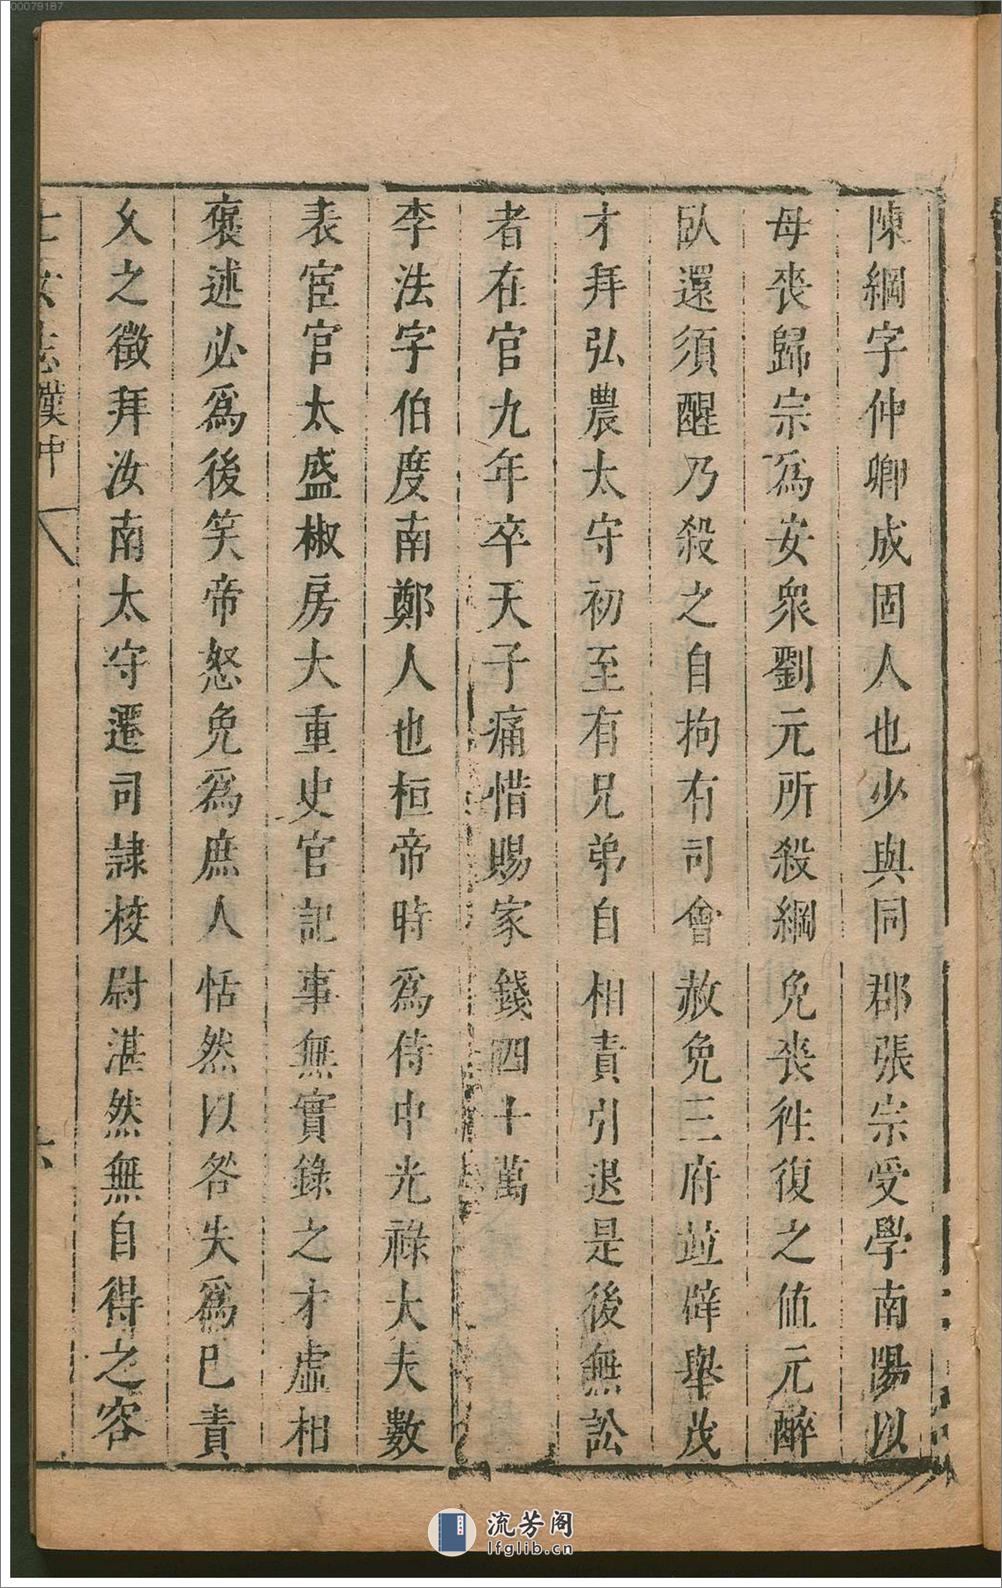 陳綱字仲卿成固人也少與同郡張宗受學南陽以
母喪歸宗爲安衆劉元所殺綱免喪徃復之值元醉
臥還須醒乃殺之自拘有司會赦免三府並辟舉茂
才拜弘農太守初至有兄弟自相責引退是後無訟
者在官九年卒天子痛惜賜家錢四十萬
李法字伯度南鄭人也桓帝時爲侍中光祿大夫數
表宦官太盛椒房大重史官記事無實錄之才虛相
褒述必爲後笑帝怒免爲庶人恬然以咎失爲己責
久之徵拜汝南太守遷司隸校尉湛然無自得之容
士女志漢中 六
00079187
流芳阁
lfglib.cn